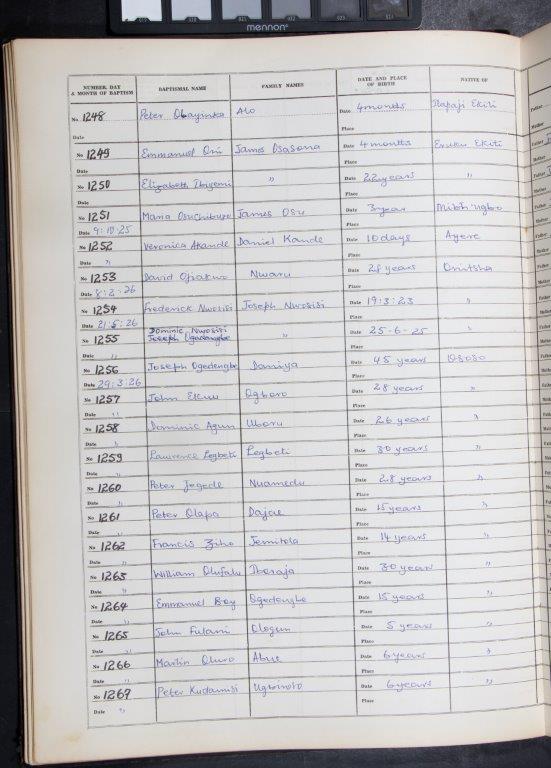 mennon
NUMBER, DAY & MONTH OF BAPTISM BAPTISMAL NAME FAMILY NAMES DATE AND PLACE OF BIRTH NATIVE OF
No. 1248 Peter Alo Date 4 months Ekiti
Date Place
No 1249 Emmanuel Oni James Osasona Date 4 months Eruku Ekiti
Date Place
No 1250 Elizabeth Ibiyemi " Date 22 years "
Date Place
No 1251 Maria James Osu Date 3 year
Date 9:10:25 Place
No 1252 Veronica Akande Daniel Kande Date 10 days Ayere
Date " Place
No 1253 David Nwaru Date 28 years Onitsha
Date 8:2:26 Place
No 1254 Frederick Nwosisi Joseph Nwosisi Date 19:3:23 "
Date 21:5:26 Place
Dominic Nwosisi
No 1255 Joseph Ogedengbe " Date 25-6-25 "
Date " Place
No 1256 Joseph Ogedengbe Daniya Date 45 years
Date 29:3:26 Place
No 1257 John Ekwu Ogboro Date 28 years "
Date " Place
No 1258 Dominic Agun Uboru Date 26 years "
Date " Place
No 1259 Lawrence Legbeti Legbeti Date 30 years "
Date " Place
No 1260 Peter Jegede Nuamedu Date 28 years "
Date " Place
No 1261 Peter Olapa Dajae Date 15 years "
Date " Place
No 1262 Francis Jemitola Date 14 years "
Date " Place
No 1263 William Olufalu Iberaja Date 30 years "
Date " Place
No 1264 Emmanuel Boy Ogedengbe Date 15 years "
Date " Place
No 1265 John Fulani Ologun Date 5 years "
Date " Place
No 1266 Martin Oluro Abue Date 6 years "
Date " Place
No 1267 Peter Kudamisi Date 6 years "
Date " Place
Father
Mother